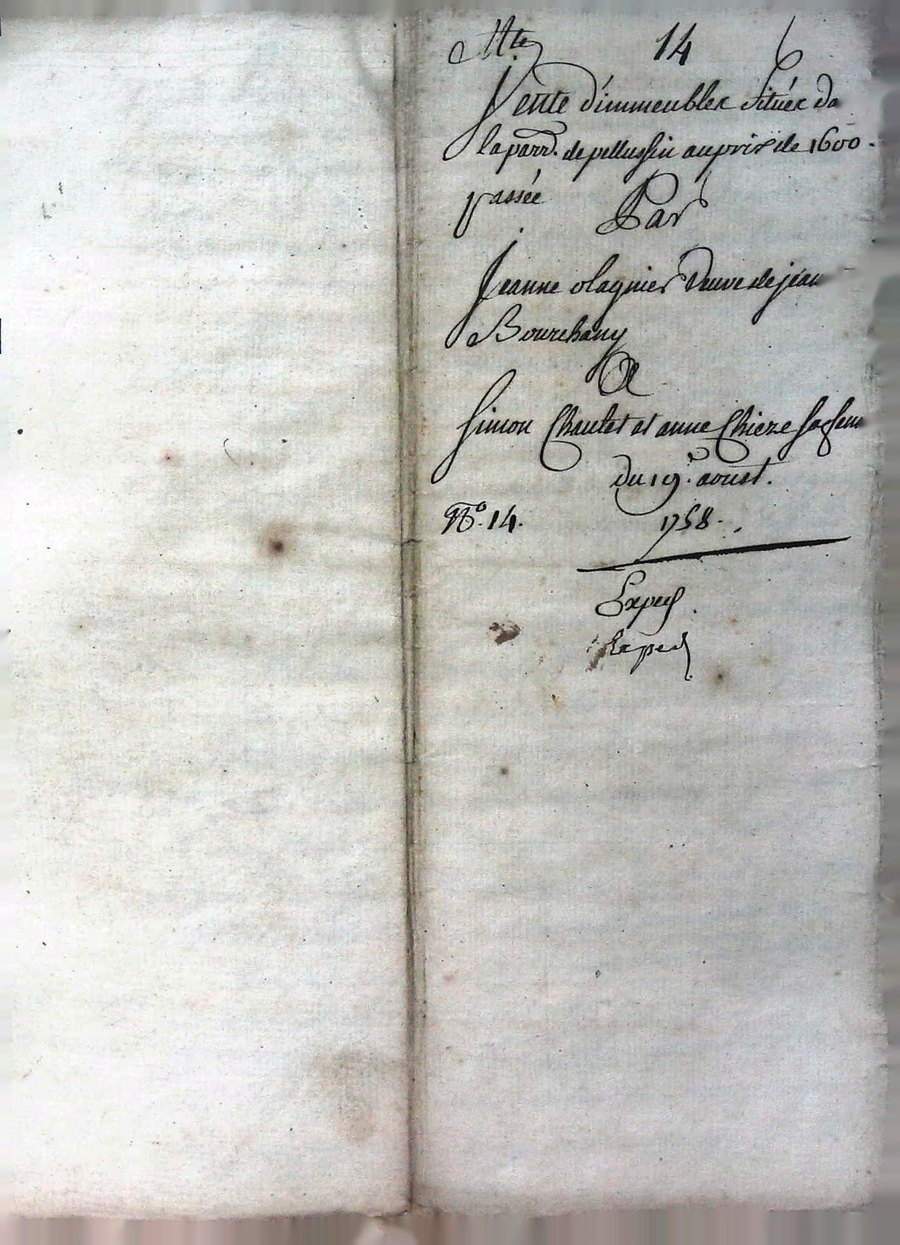 14
Vente d'immeubles situés da
la parr. de pellussin au prix de 1600
passée Par
Jeanne olagnier veuve de jean
Bourchany
A
Simon Chautet et anne Chieze sa fem
du 19e. aoust.
No. 14. 1758.
Exped.
Exped